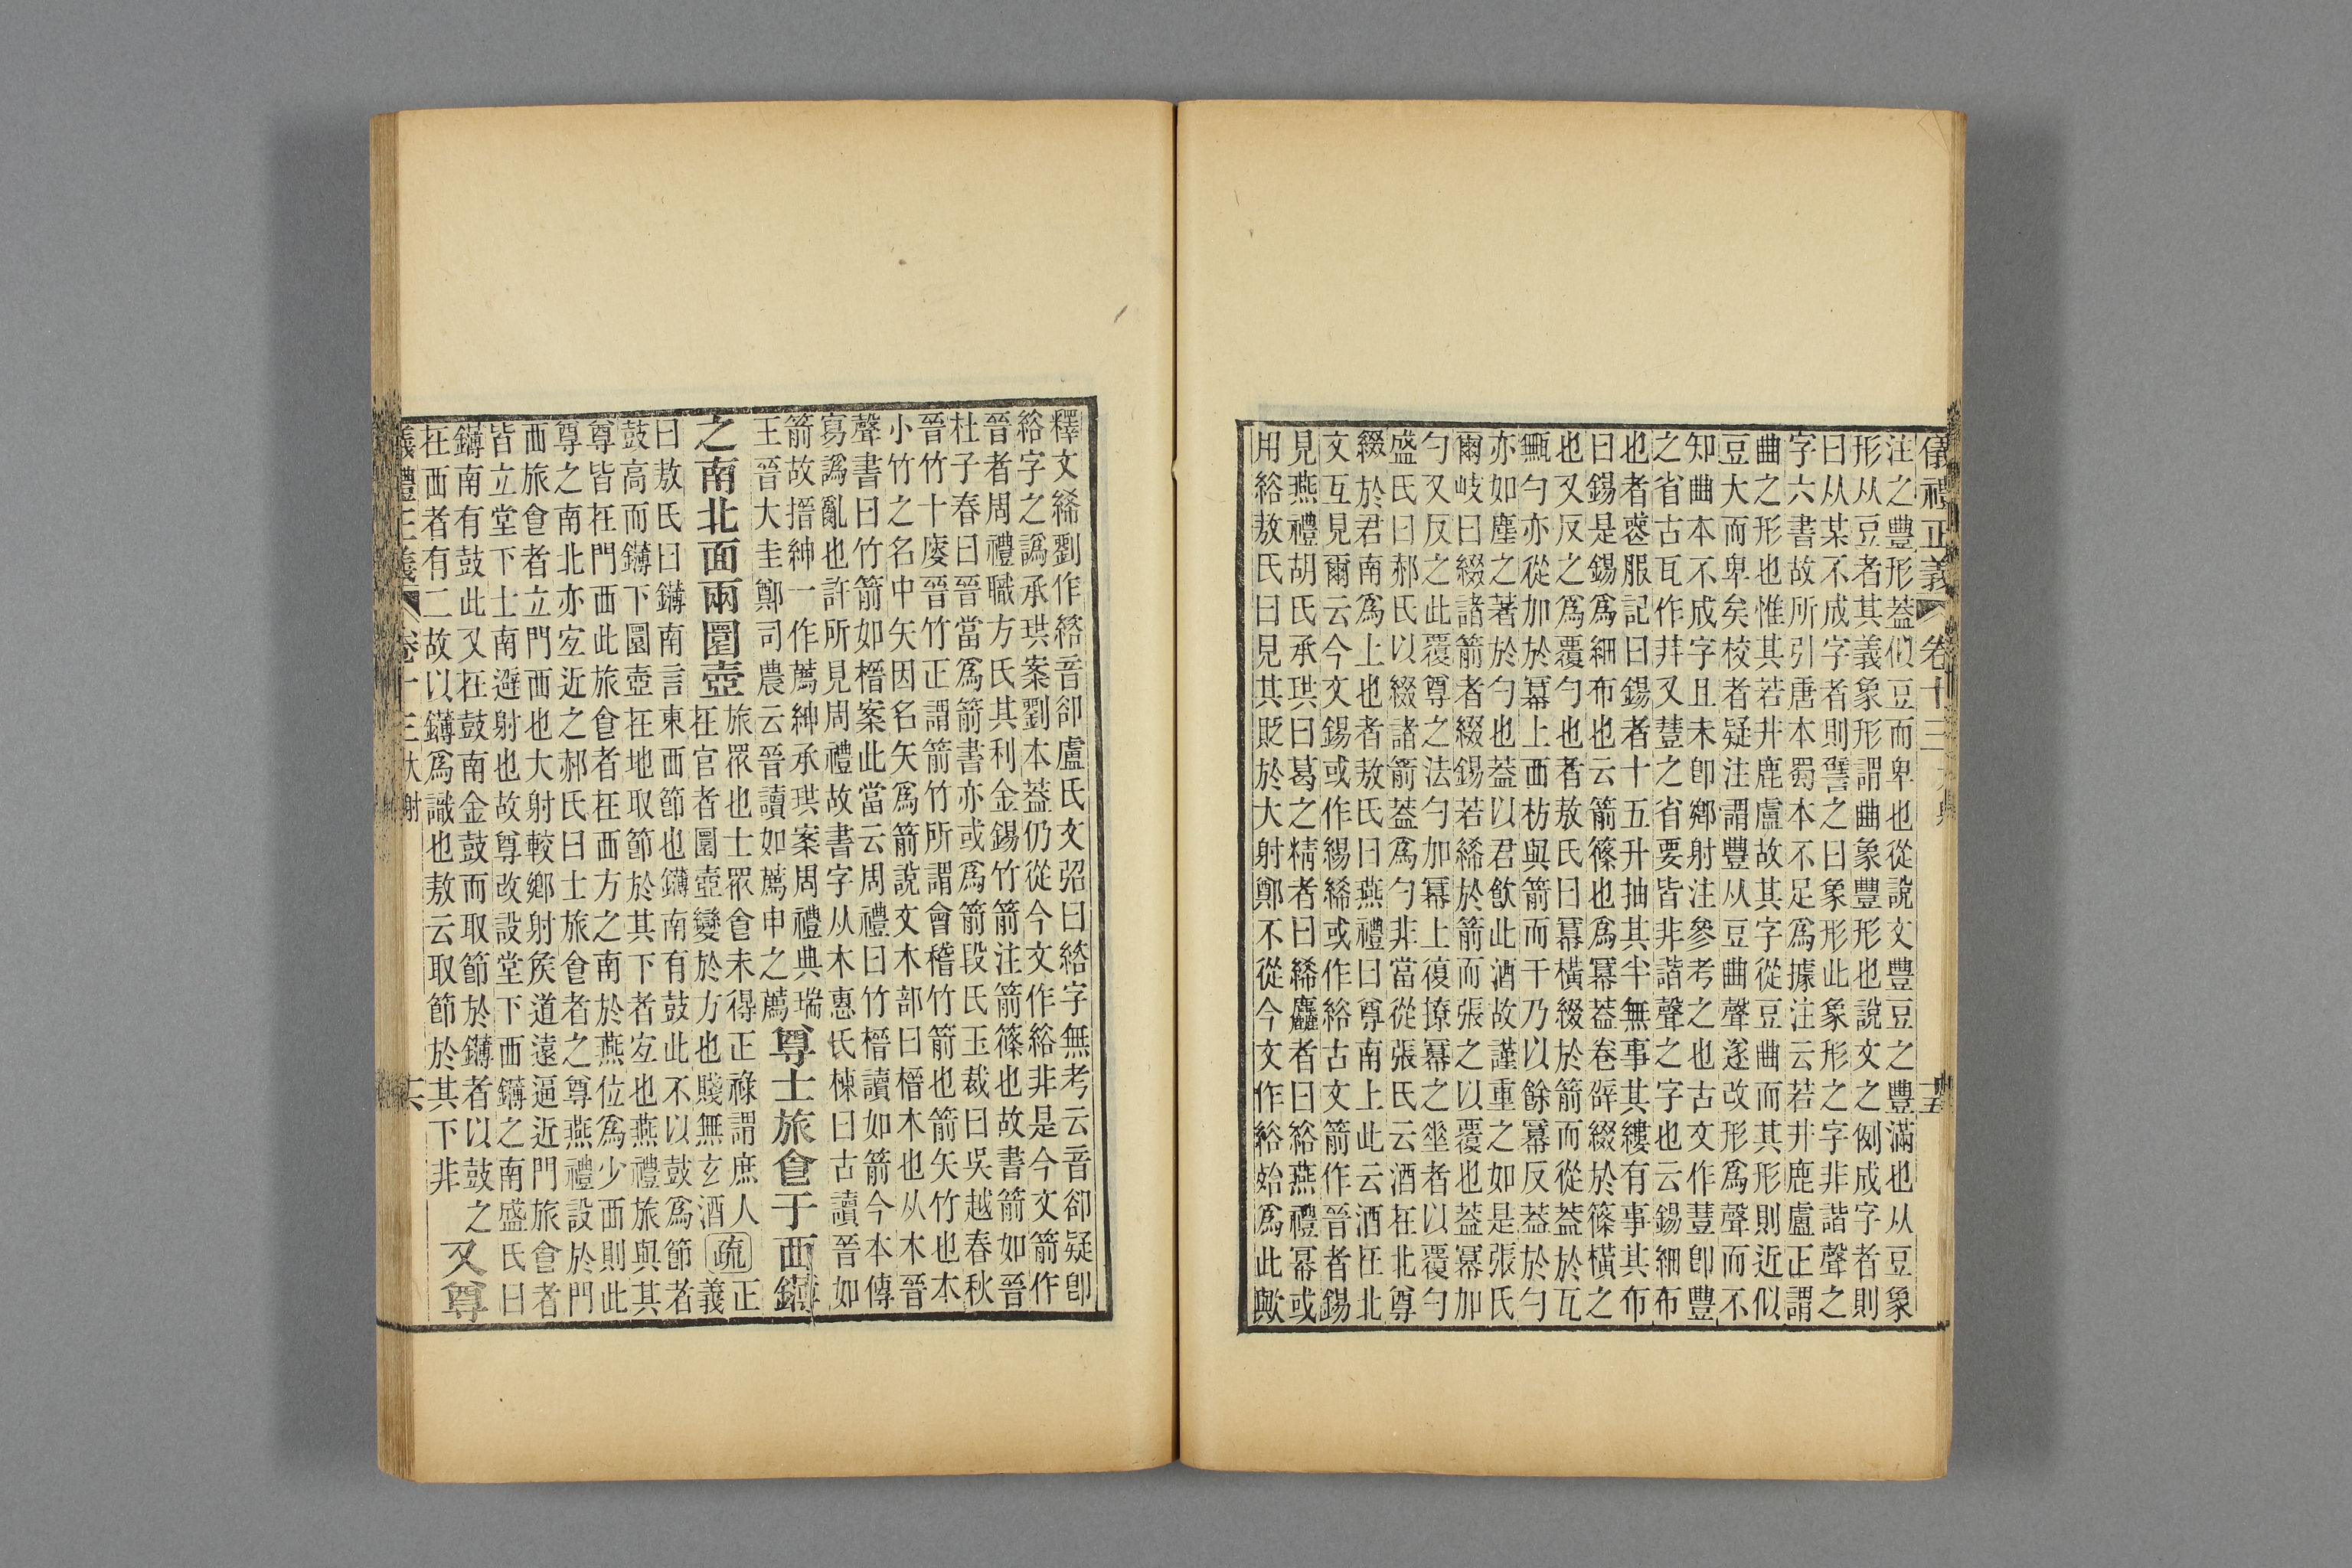 儀禮正義 卷十三 十五
注之豐形蓋似豆而卑也從說文豐豆之豐滿也从豆象
形从豆者其義象形謂曲象豐形也說文之例成字者則
曰从某不成字者則謷之曰象形此象形之字非諧聲之
字六書故所引唐本蜀本不足爲據注云若井鹿盧正謂
曲之形也惟其若井鹿盧故其字從豆曲而其形則近似
豆大而卑矣校者疑注謂豐从豆曲聲遂改形爲聲而不
知曲本不成字且未卽鄉射注參考之也古文作荳卽豐
之省古瓦作荓又荳之省要皆非諧聲之字也云錫細布
也者喪服記曰錫者十五升抽其半無事其縷有事其布
曰錫是錫爲細布也云箭篠也爲冪蓋卷辟綴於篠橫之
也又反之爲覆勺也者敖氏曰冪橫綴於箭而從蓋於瓦
甒勺亦從加於冪上西枋與箭而干乃以餘冪反蓋於勺
亦如塵之著於勺也蓋以君飲此酒故謹重之如是張氏
爾岐曰綴諸箭者綴錫若絺於箭而張之以覆也蓋冪加
勺又反之此覆尊之法勺加冪上復撩冪之坐者以覆勺
盛氏曰郝氏以綴諸箭蓋爲勺非當從張氏云酒在北尊
綴於君南爲上也者敖氏曰燕禮曰尊南上此云酒在北
文互見爾云今文錫或作緆絺或作綌古文箭作晉者錫
見燕禮胡氏承珙曰葛之精者曰絺麤者曰綌燕禮冪或
用綌敖氏曰見其貶於大射鄭不從今文作綌始爲此歟
釋文絺劉作綌音卻盧氏文弨曰綌字無考云音卻疑卽
綌字之譌承珙案劉本蓋仍從今文作綌非是今文箭作
晉者周禮職方氏其利金錫竹箭注箭篠也故書箭如晉
杜子春曰晉當爲箭書亦或爲箭段氏玉裁曰吳越春秋
晉竹十廋晉竹正謂箭竹所謂會稽竹箭也箭矢竹也本
小竹之名中矢因名矢爲箭說文木部曰榗木也从木晉
聲書曰竹箭如榗案此當云周禮曰竹榗讀如箭今本傳
寫譌亂也許所見周禮故書字从木惠氏棟曰古讀晉如
箭故搢紳一作薦紳承珙案周禮典瑞
王晉大圭鄭司農云晉讀如薦申之薦尊士旅食于西鑮
之南北面兩圜壺旅眾也士眾食未得正祿謂庶人
在官者圜壺變於方也賤無玄酒疏正義
曰敖氏曰鑮南言東西節也鑮南有鼓此不以鼓爲節者
鼓高而鑮下圜壺在地取節於其下者宜也燕禮旅與其
尊皆在門西此旅食者在西方之南於燕位爲少西則此
尊之南北亦宜近之郝氏曰士旅食者之尊燕禮設於門
西旅食者立門西也大射較鄉射矦道遠逼近門旅食者
皆立堂下士南避射也故尊改設堂下西鑮之南盛氏曰
鑮南有鼓此又在鼓南金鼓而取節於鑮者以鼓之
在西者有二故以鑮爲識也敖云取節於其下非又尊